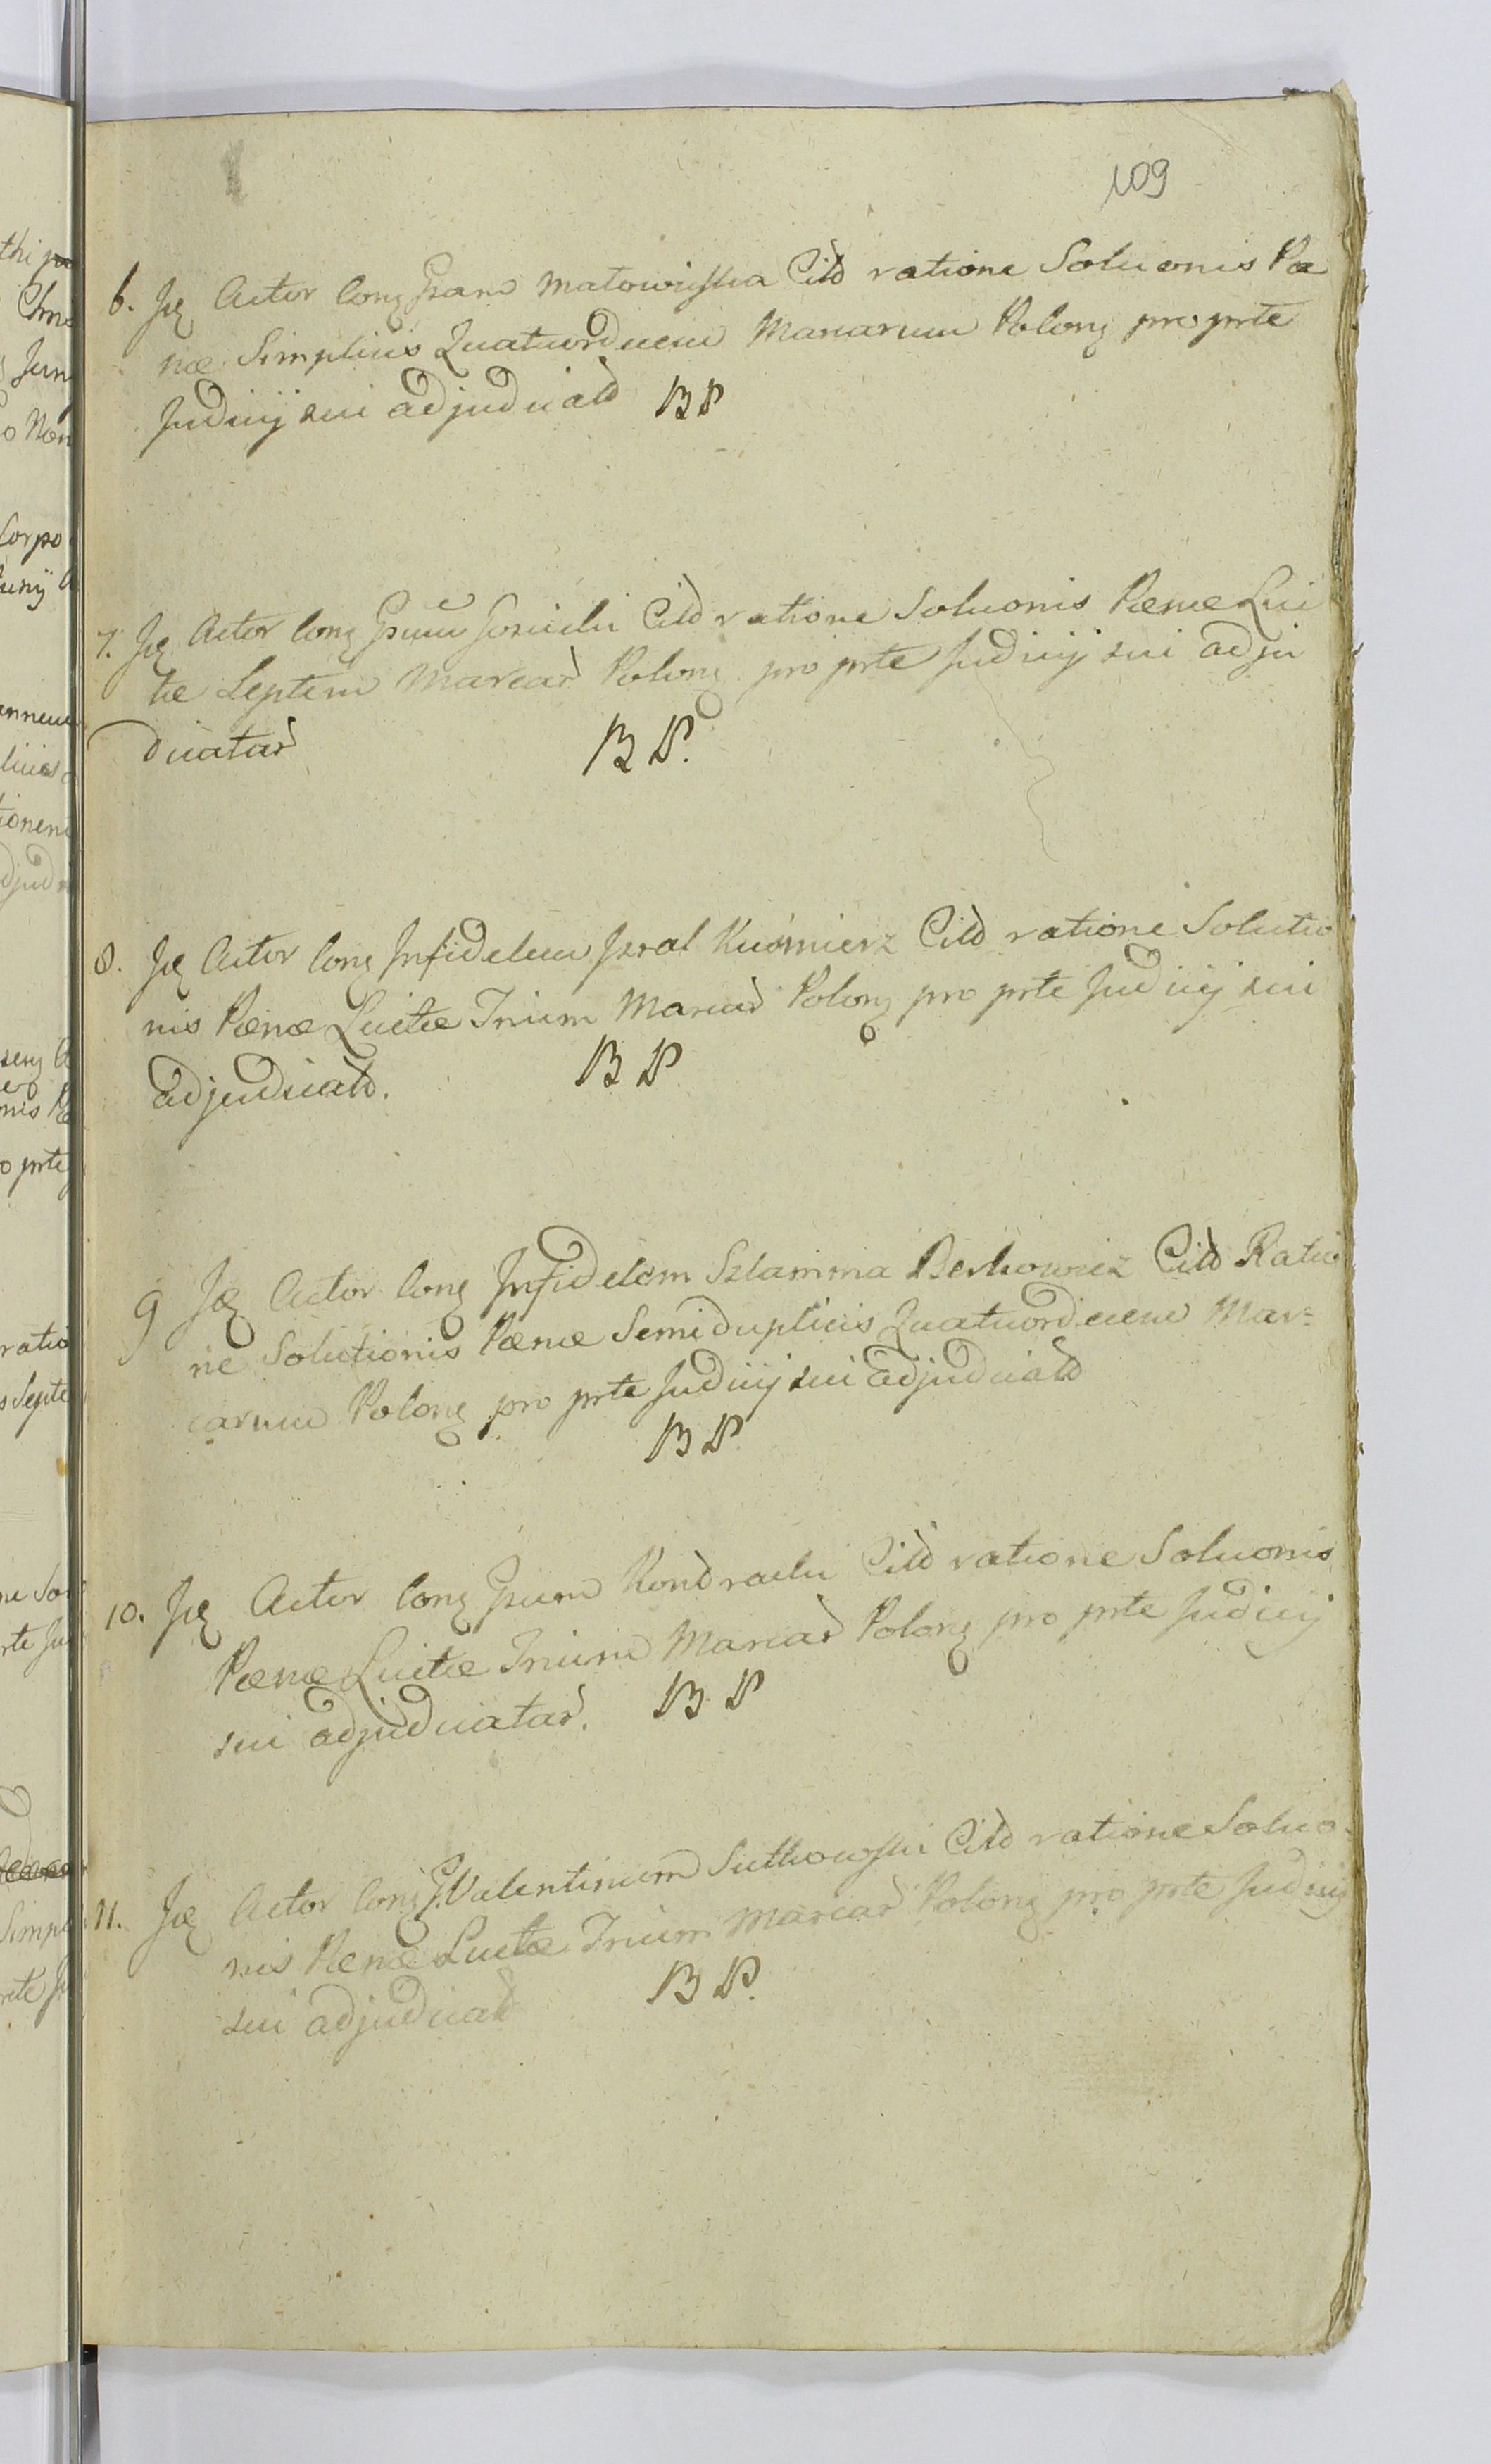 109
6. Jz Actor Conz Gsam Matowiɉska Citt ratione Soluonis Pæ
næ Simplicis Quatuordecem Marcarum Polonz pro prte
Judicij sui adjudicatt BP
7. Jz Actor Conz Gsum Sosicki Citt ratione Soluonis Pænæ Lui
tæ Septem Marcar Polonz pro prte Judicij sui adju
dicatar BP.
8. Jz Actor Conz Infidelem Jzral Kuśmierz Citt ratione Solutio
nis Pænæ Luitæ Trium Marcar Polonz pro prte Judicij sui
adjudicatt. BP
9 Jz Actor Conz Infidelem Szlamma Berkowicz Citt Ratio
ne Solutionis Pænæ Semiduplicis Quatuordecem Mar=
carum Polonz pro prte Judicij sui adjudicatt
BP
10. Jz Actor Conz Gsum Kondracki Citt ratione Soluonis
Pænæ Luitæ Trium Marcar Polonz pro prte Judicij
sui adjudicatar. BP
11. Jz Actor Conz G. Valentinum Sutkowski Citt ratione Soluo
nis Pænæ Luitæ Trium Marcar Polonz pro prte Judicij
sui adjudicatt BP.